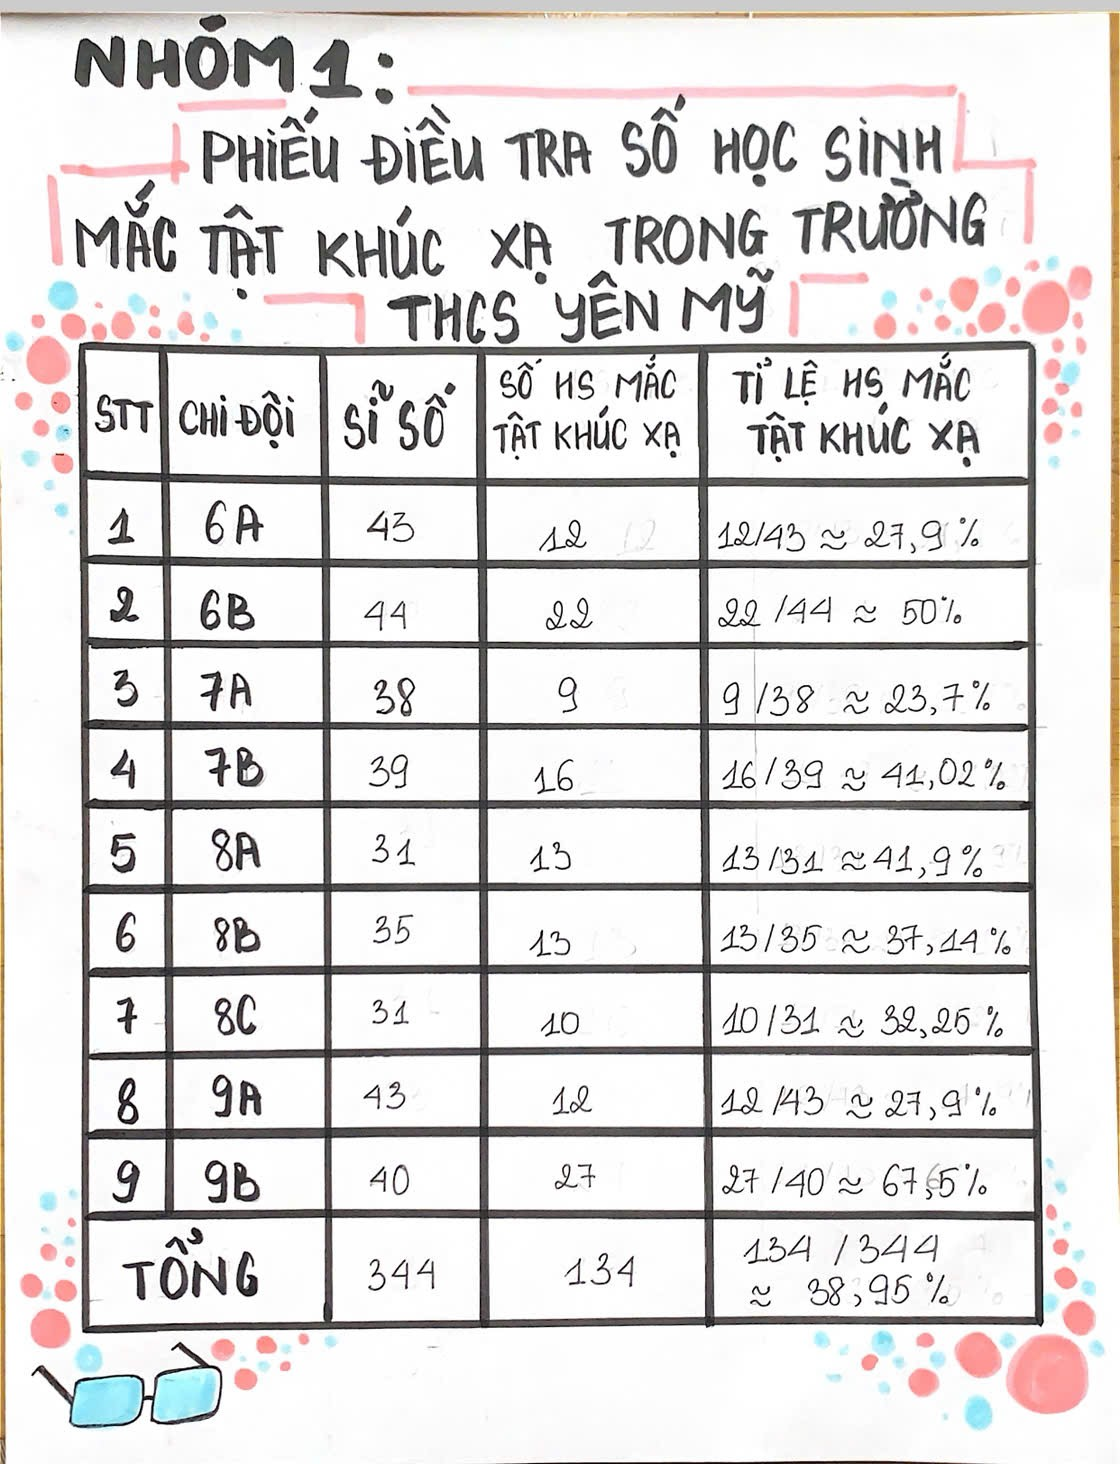 NHÓM 1:
PHIẾU ĐIỀU TRA SỐ HỌC SINH
MẮC TẬT KHÚC XẠ TRONG TRƯỜNG
THCS YÊN MỸ
STT CHI ĐỘI SĨ SỐ SỐ HS MẮC TẬT KHÚC XẠ TỈ LỆ HS MẮC TẬT KHÚC XẠ
1 6A 43 12 12/43 ≈ 27,9%
2 6B 44 22 22/44 ≈ 50%
3 7A 38 9 9/38 ≈ 23,7%
4 7B 39 16 16/39 ≈ 41,02%
5 8A 31 13 13/31 ≈ 41,9%
6 8B 35 13 13/35 ≈ 37,14%
7 8C 31 10 10/31 ≈ 32,25%
8 9A 43 12 12/43 ≈ 27,9%
9 9B 40 27 27/40 ≈ 67,5%
TỔNG 344 134 134/344
≈ 38,95%